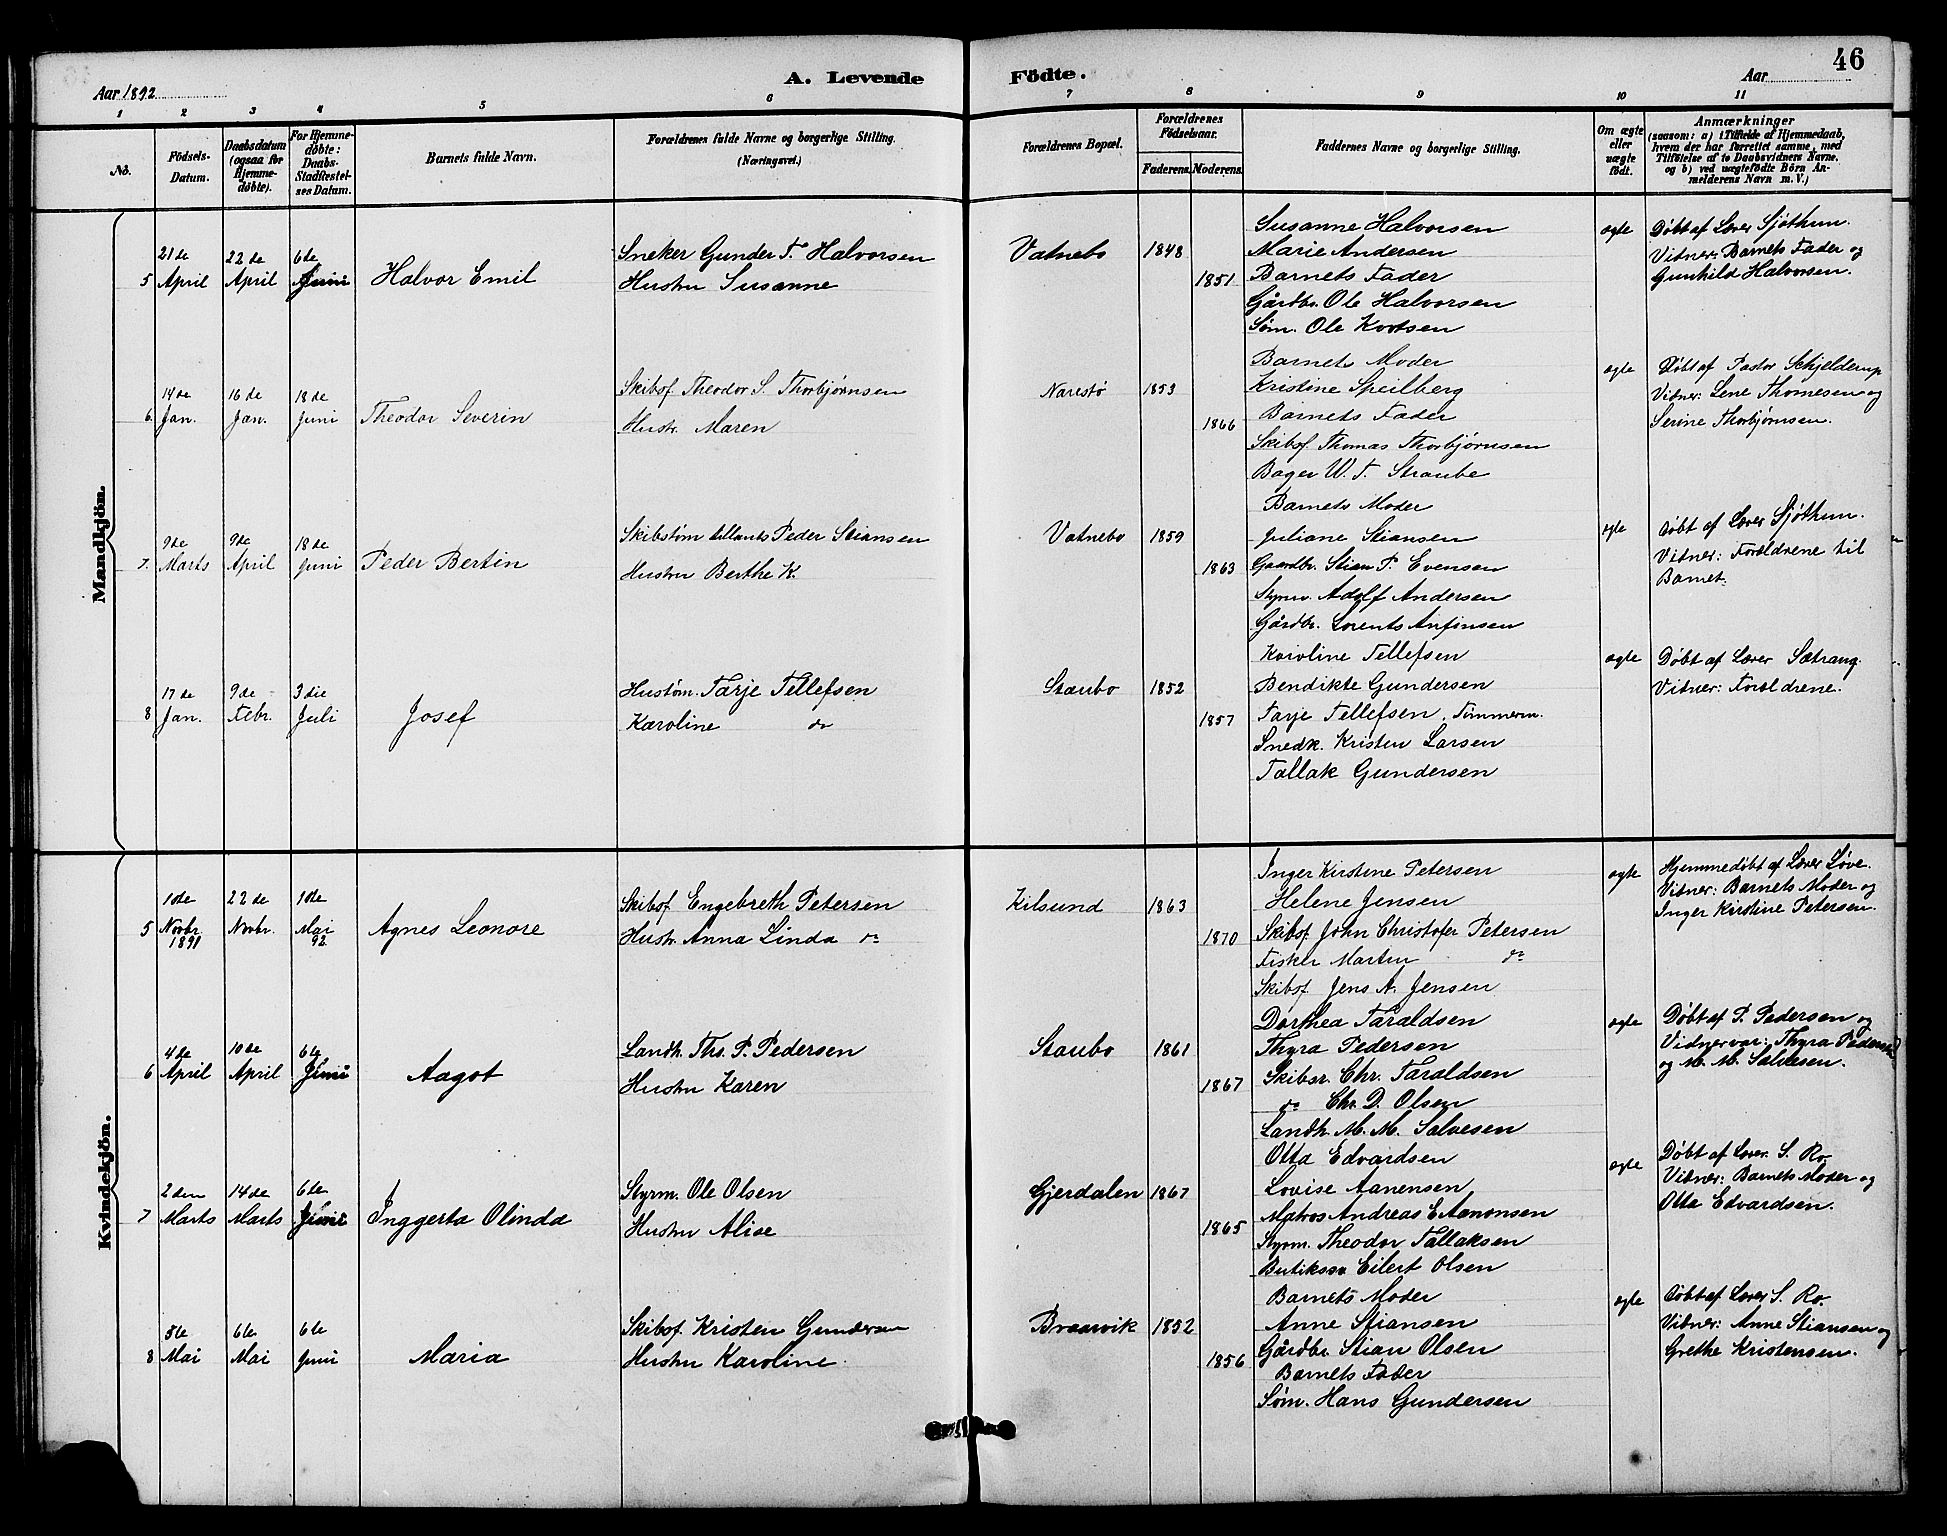 46
A. Levende Födte.
Aar 1892
Aar
1 2 3 4 5 6 7 8 9 10 11
No.
Födsels-Datum.
Daabsdatum (ogsaa for Hjemme-döbte).
For Hjemme-döbte: Daabs-Stadfæstel-ses Datum.
Barnets fulde Navn.
Forældrenes fulde Navne og borgerlige Stilling. (Næringsvei.)
Forældrenes Bopæl.
Forældrenes Födselsaar.
Faderens. Moderens.
Faddernes Navne og borgerlige Stilling.
Om ægte eller uægte födt.
Anmærkninger
(saasom: a) i Tilfælde af Hjemmedaab, hvem der har forrettet samme, med Tilföielse af to Daabsvidners Navne, og b) ved uægtefödte Börn An-melderens Navn m. V.)
Mandkjön.
5 21de April 22de April 6te Juni
Halvor Emil
Sneker Gunder T. Halvorsen
Hustru Susanne
Vatnebo 1848 1851
Susanne Halvorsen
Marie Andersen
Barnets Fader
Gårdbr. Ole Halvorsen
Søm. Ole Knutsen
ægte
Døbt af Lærer Sjøthun.
Vidner: Barnets Fader og
Gunhild Halvorsen.
6. 14de Jan. 16de Jan. 18de Juni
Theodor Severin
Skibsf. Theodor S. Thorbjørnsen
Hustr. Maren
Narestø 1853 1866
Barnets Moder
Kristine Speilberg
Barnets Fader
Skibsf. Thomas Thorbjørnsen
Bager W. T. Straube
ægte
Døbt af Pastor Schjelderup
Vidner: Lene Thomesen og
Serine Thorbjørnsen.
7. 9de Marts 9de April 18de Juni
Peder Bertin
Skibstøm Peder Stiansen
Hustru Berthe K.
Vatnebo 1859 1863
Barnets Moder
Juliane Stiansen
Gaardbr. Stian P. Evensen
Styrm. Adolf Andersen
Gårdbr. Lorents Anfinsen
ægte
Døbt af Lærer Sjøthun.
Vidner: Forældrene til
Barnet.
8 17de Jan. 9de Febr. 3die Juli
Josef
Hustøm. Tarje Tellefsen
Karoline do
Staubo 1852 1857
Karoline Tellefsen
Bendikte Gundersen
Tarje Tellefsen, Tømmerm.
Snedk. Kristen Larsen
Tallak Gundersen
ægte
Døbt af Lærer Sætrang.
Vidner: Forældrene.
Kvindekjön.
5 10de Novbr. 1891 22de Novbr. 1ode Mai 92
Agnes Leonore
Skibsf. Engebreth Petersen
Hustr. Anna Linda do
Kilsund 1863 1870
Inger Kirstine Petersen
Helene Jensen
Skibsf. John Christofer Petersen
Fisker Martin do
Skibsf. Jens A. Jensen
ægte
Hjemmedøbt af Lærer Løve.
Vidner: Barnets Moder og
Inger Kirstine Petersen.
6 4de April 10de April 6te Juni
Aagot
Landh. Ths. P. Pedersen
Hustru Karen
Staubo 1861 1867
Dorthea Taraldsen
Thyra Pedersen
Skibsr. Chr. Taraldsen
do Chr. D. Olsen
Landh. M. M. Salvesen
ægte
Døbt af P. Pedersen og
Vidner var: Thyra Pedersen
og M. M. Salvesen.
7 2den Marts 14de Marts 6te Juni
Inggerta Olinda
Styrm. Ole Olsen
Hustru Alise
Gjerdalen 1867 1865
Otta Edvardsen
Lovise Aanensen
Matros Andreas E. Aanonsen
Styrm. Theodor Tallaksen
Butiksm Eilert Olsen
ægte
Døbt af Lærer S. Ro.
Vidner: Barnets Moder og
Otta Edvardsen.
8 5te Mai 6te Mai 6te Juni
Maria
Skibsf. Kristen Gundersen
Hustru Karoline.
Braarvik 1852 1856
Barnets Moder
Anne Stiansen
Gårdbr. Stian Olsen
Barnets Fader
Søm. Hans Gundersen
ægte
Døbt af Lærer S. Ro.
Vidner: Anne Stiansen og
Grethe Kristensen.